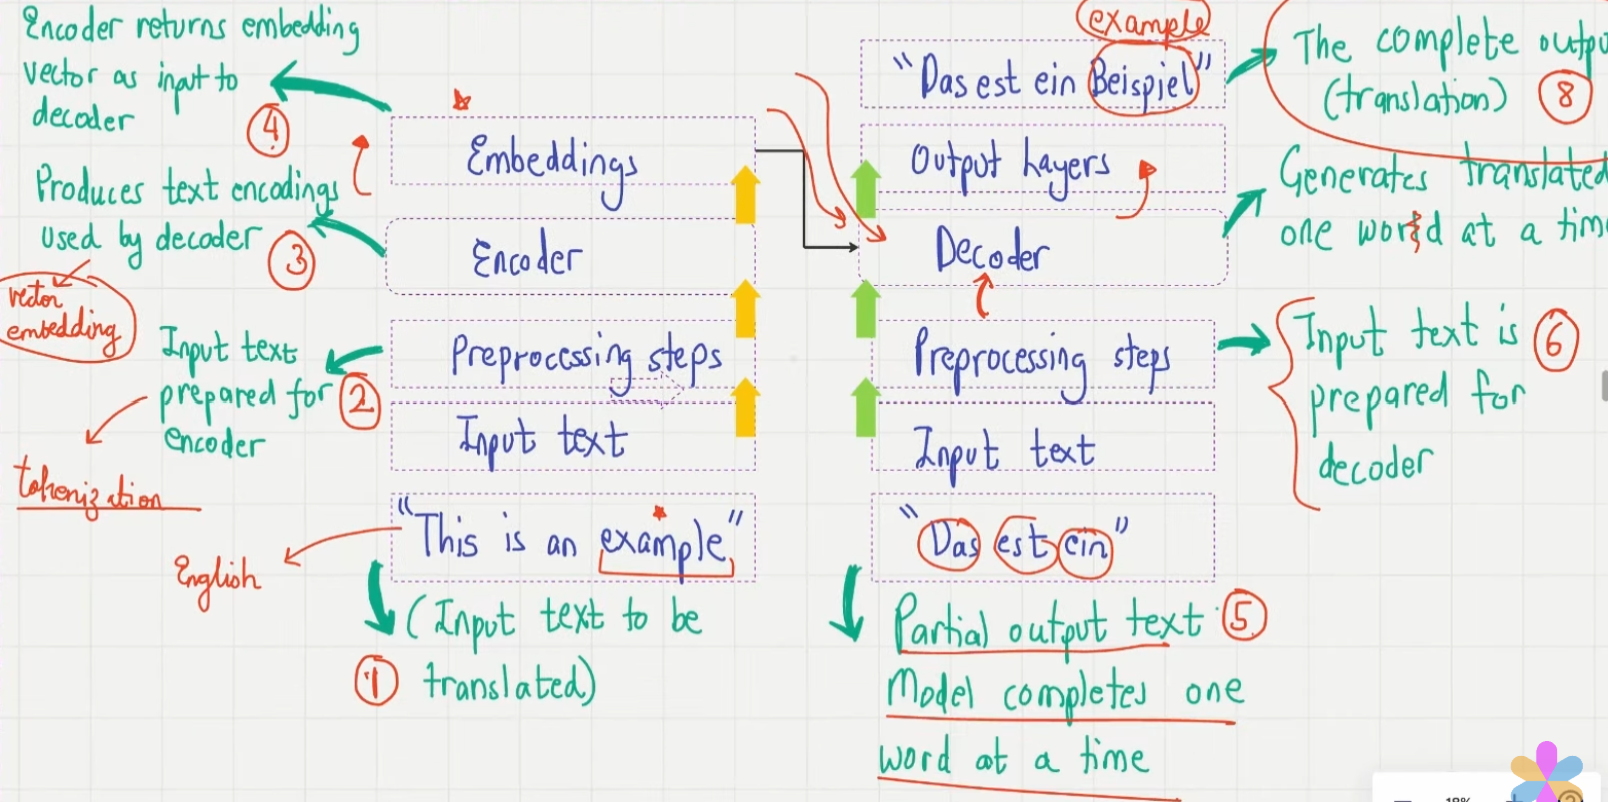 Encoder returns embedding
vector as input to
decoder
4
Produces text encodings
used by decoder
3
vector
embedding
Input text
prepared for
encoder
2
tokenization
English
Embeddings
Encoder
Preprocessing steps
Input text
"This is an example"
(Input text to be
translated)
1
example
"Das est ein Beispiel"
Output Layers
Decoder
Preprocessing steps
Input text
"Das est ein"
Partial output text
5
Model completes one
word at a time
The complete outpu
(translation)
8
Generates translated
one word at a tim
Input text is
prepared for
decoder
6